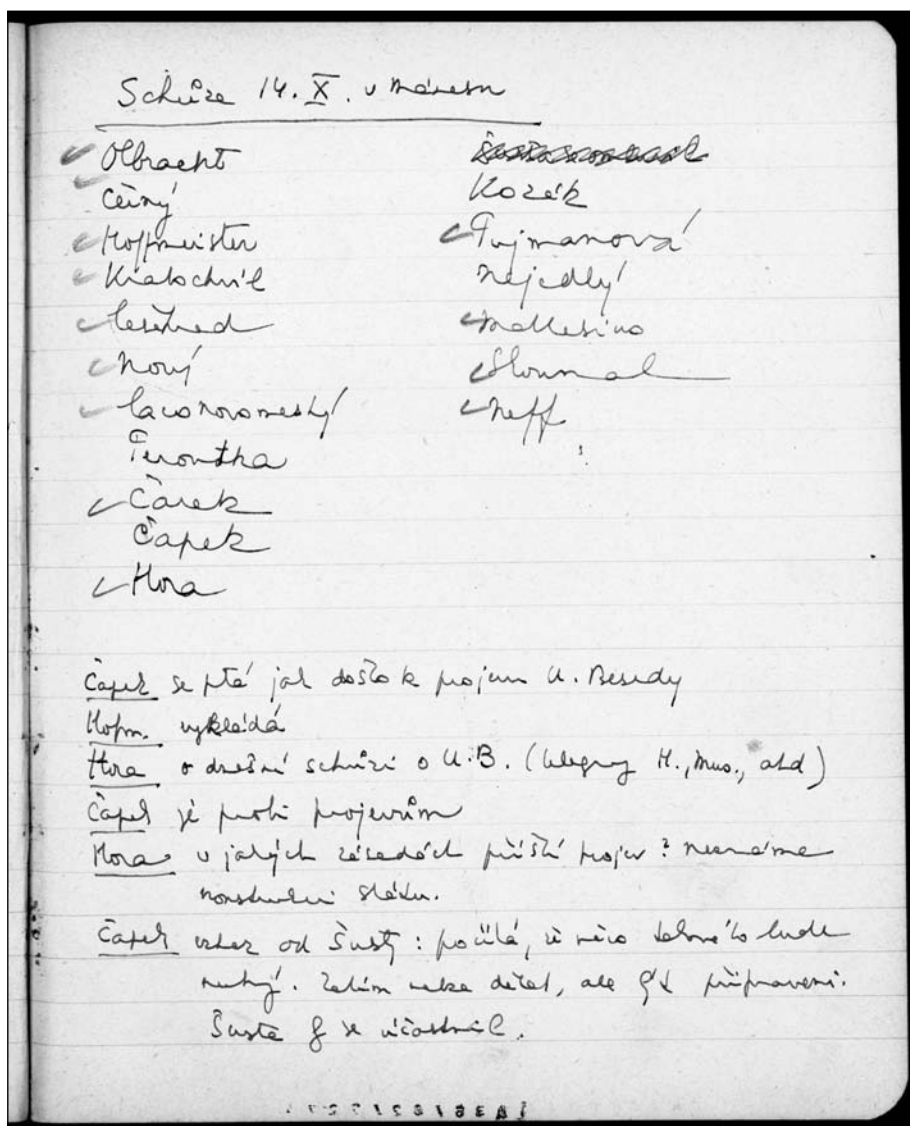 Schůze 14. X. v Mánesu
Olbracht
Černý
Hoffmeister
Kratochvíl
Lešehrad
Nový
Laco Novomeský
Peroutka
Čarek
Čapek
Hora
Kozák
Pujmanová
Nejedlý
Mathesius
Hloumal
Neff
Čapek se ptá jak došlo k projevu U. Besedy
Hofm. vykládá
Hora o dnešní schůzi o U.B. (telegramy H., Mus., atd)
Čapek je proti projevům
Hora v jakých zásadách příští projev? neznáme
konstrukci státu.
Čapek vzkaz od Šusty: počítá, že něco takového bude
nutný. Zatím nelze dělat, ale být připraveni.
Šusta by se účastnil.